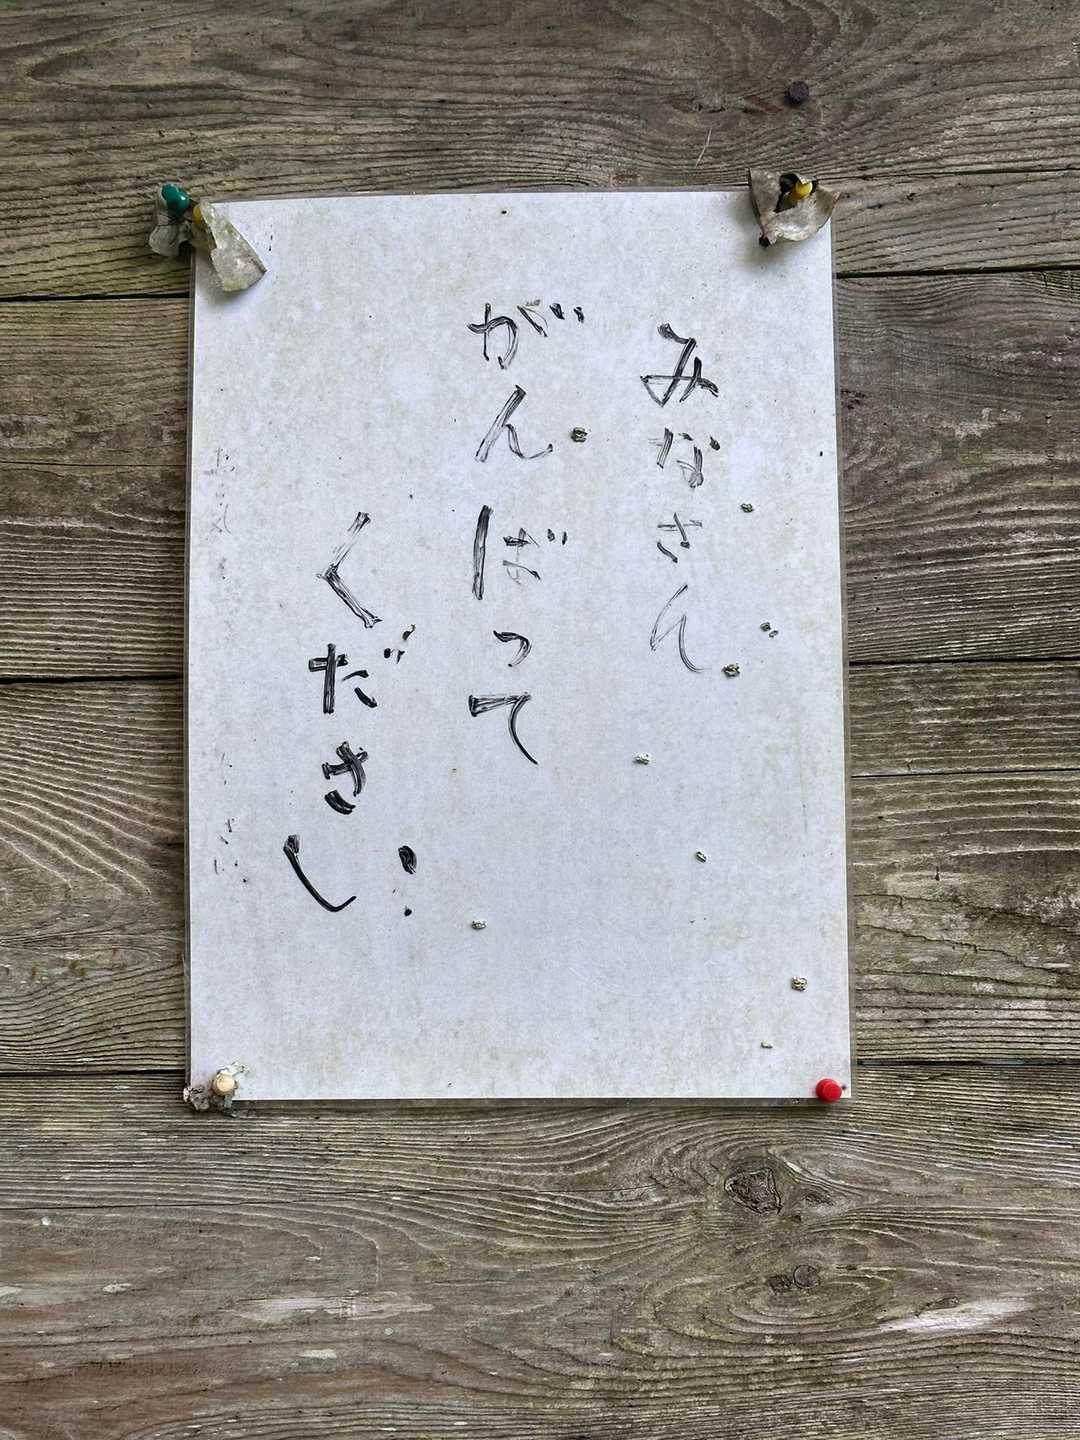 みなさん
がんばって
ください!